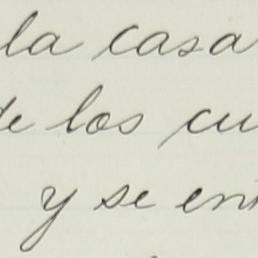 la casa
de los cu
y se ent